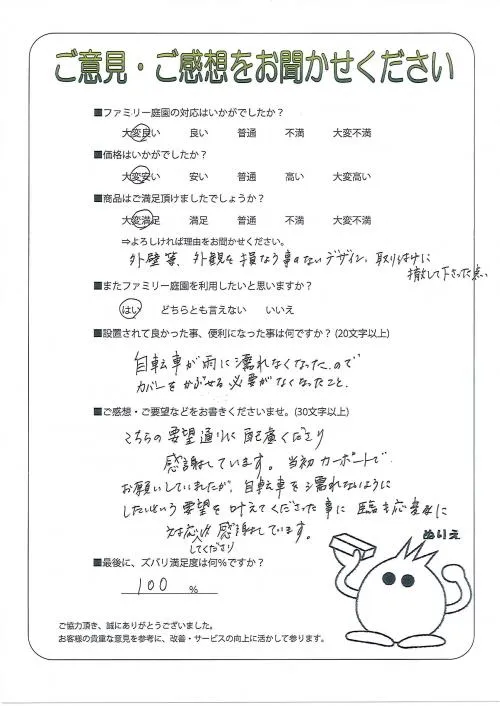 ご意見・ご感想をお聞かせください
■ファミリー庭園の対応はいかがでしたか？
大変良い 良い 普通 不満 大変不満
■価格はいかがでしたか？
大変安い 安い 普通 高い 大変高い
■商品はご満足頂けましたでしょうか？
大変満足 満足 普通 不満 大変不満
⇒よろしければ理由をお聞かせください。
外壁等、外観を損なう事のないデザイン。取り付けに
徹して下さった点
■またファミリー庭園を利用したいと思いますか？
はい どちらとも言えない いいえ
■設置されて良かった事、便利になった事は何ですか？(20文字以上)
自転車が雨に濡れなくなったので
カバーをかぶせる必要がなくなったこと。
■ご感想・ご要望などをお書きくださいませ。(30文字以上)
こちらの要望通りに配慮くださり
感謝しています。当初カーポートで
お願いしていましたが、自転車を濡れないように
したいという要望を叶えてくださった事に 臨機応変に
対応してくださり 感謝しています。
ぬりえ
■最後に、ズバリ満足度は何％ですか？
100 %
ご協力頂き、誠にありがとうございました。
お客様の貴重な意見を参考に、改善・サービスの向上に活かして参ります。